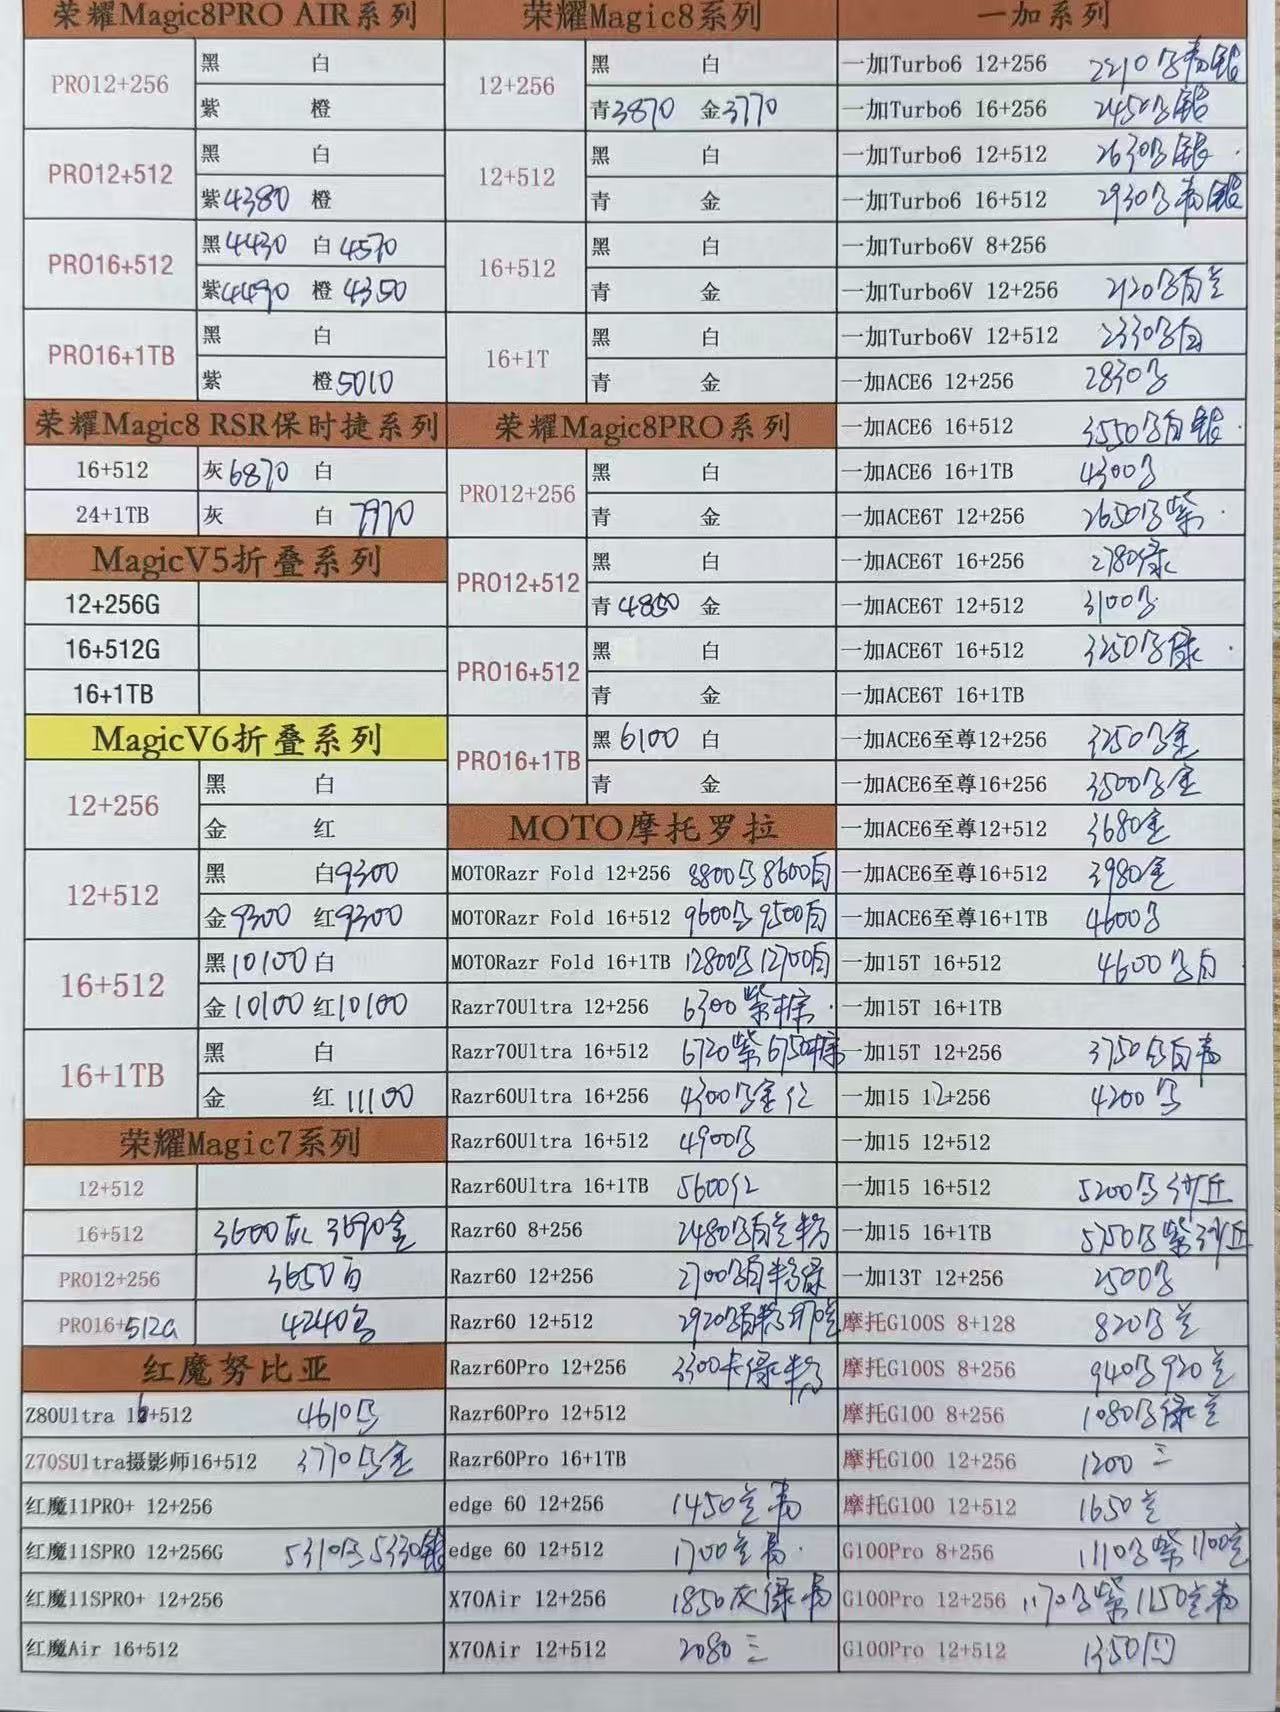 荣耀Magic8PRO AIR系列
PRO12+256
黑 白
紫 橙
PRO12+512
黑 白
紫4380 橙
PRO16+512
黑4430 白4570
紫4490 橙4350
PRO16+1TB
黑 白
紫 橙5010
荣耀Magic8 RSR保时捷系列
16+512 灰6870 白
24+1TB 灰 白7970
MagicV5折叠系列
12+256G
16+512G
16+1TB
MagicV6折叠系列
12+256
黑 白
金 红
12+512
黑 白9300
金9300 红9300
16+512
黑10100 白
金10100 红10100
16+1TB
黑 白
金 红11100
荣耀Magic7系列
12+512
16+512 3600灰 3690金
PRO12+256 3650白
PRO16+512G 4240
红魔努比亚
Z80Ultra 16+512 4610
Z70SUltra摄影师16+512 3770 金
红魔11PRO+ 12+256
红魔11SPRO 12+256G 5310 5330银
红魔11SPRO+ 12+256
红魔Air 16+512
荣耀Magic8系列
12+256
黑 白
青3870 金3770
12+512
黑 白
青 金
16+512
黑 白
青 金
16+1T
黑 白
青 金
荣耀Magic8PRO系列
PRO12+256
黑 白
青 金
PRO12+512
黑 白
青4850 金
PRO16+512
黑 白
青 金
PRO16+1TB
黑6100 白
青 金
MOTO摩托罗拉
MOTORazr Fold 12+256 8800 8600白
MOTORazr Fold 16+512 9600 9500白
MOTORazr Fold 16+1TB 12800 12700白
Razr70Ultra 12+256 6300紫棕
Razr70Ultra 16+512 6720紫 6750棕
Razr60Ultra 16+256 4300 金红
Razr60Ultra 16+512 4900
Razr60Ultra 16+1TB 5600红
Razr60 8+256 2480
Razr60 12+256 2700
Razr60 12+512 2920
Razr60Pro 12+256 3300
Razr60Pro 12+512
Razr60Pro 16+1TB
edge 60 12+256 1450兰
edge 60 12+512 1700兰
X70Air 12+256 1850灰绿
X70Air 12+512 2080三
一加系列
一加Turbo6 12+256 2210
一加Turbo6 16+256 2450 银
一加Turbo6 12+512 2630 银
一加Turbo6 16+512 2930
一加Turbo6V 8+256
一加Turbo6V 12+256 2120 白兰
一加Turbo6V 12+512 2330 白
一加ACE6 12+256 2830
一加ACE6 16+512 3550 白银
一加ACE6 16+1TB 4300
一加ACE6T 12+256 2650 紫
一加ACE6T 16+256 2780绿
一加ACE6T 12+512 3100
一加ACE6T 16+512 3250 绿
一加ACE6T 16+1TB
一加ACE6至尊12+256 3250 金
一加ACE6至尊16+256 3500 金
一加ACE6至尊12+512 3680金
一加ACE6至尊16+512 3980金
一加ACE6至尊16+1TB 4600
一加15T 16+512 4600 白
一加15T 16+1TB
一加15T 12+256 3750 白
一加15 12+256 4200
一加15 12+512
一加15 16+512 5200 沙丘
一加15 16+1TB 5750 紫沙丘
一加13T 12+256 2500
摩托G100S 8+128 820 兰
摩托G100S 8+256 940 920兰
摩托G100 8+256 1080 绿兰
摩托G100 12+256 1200三
摩托G100 12+512 1650兰
G100Pro 8+256 1110 紫 1100兰
G100Pro 12+256 1170 紫 1150兰
G100Pro 12+512 1350